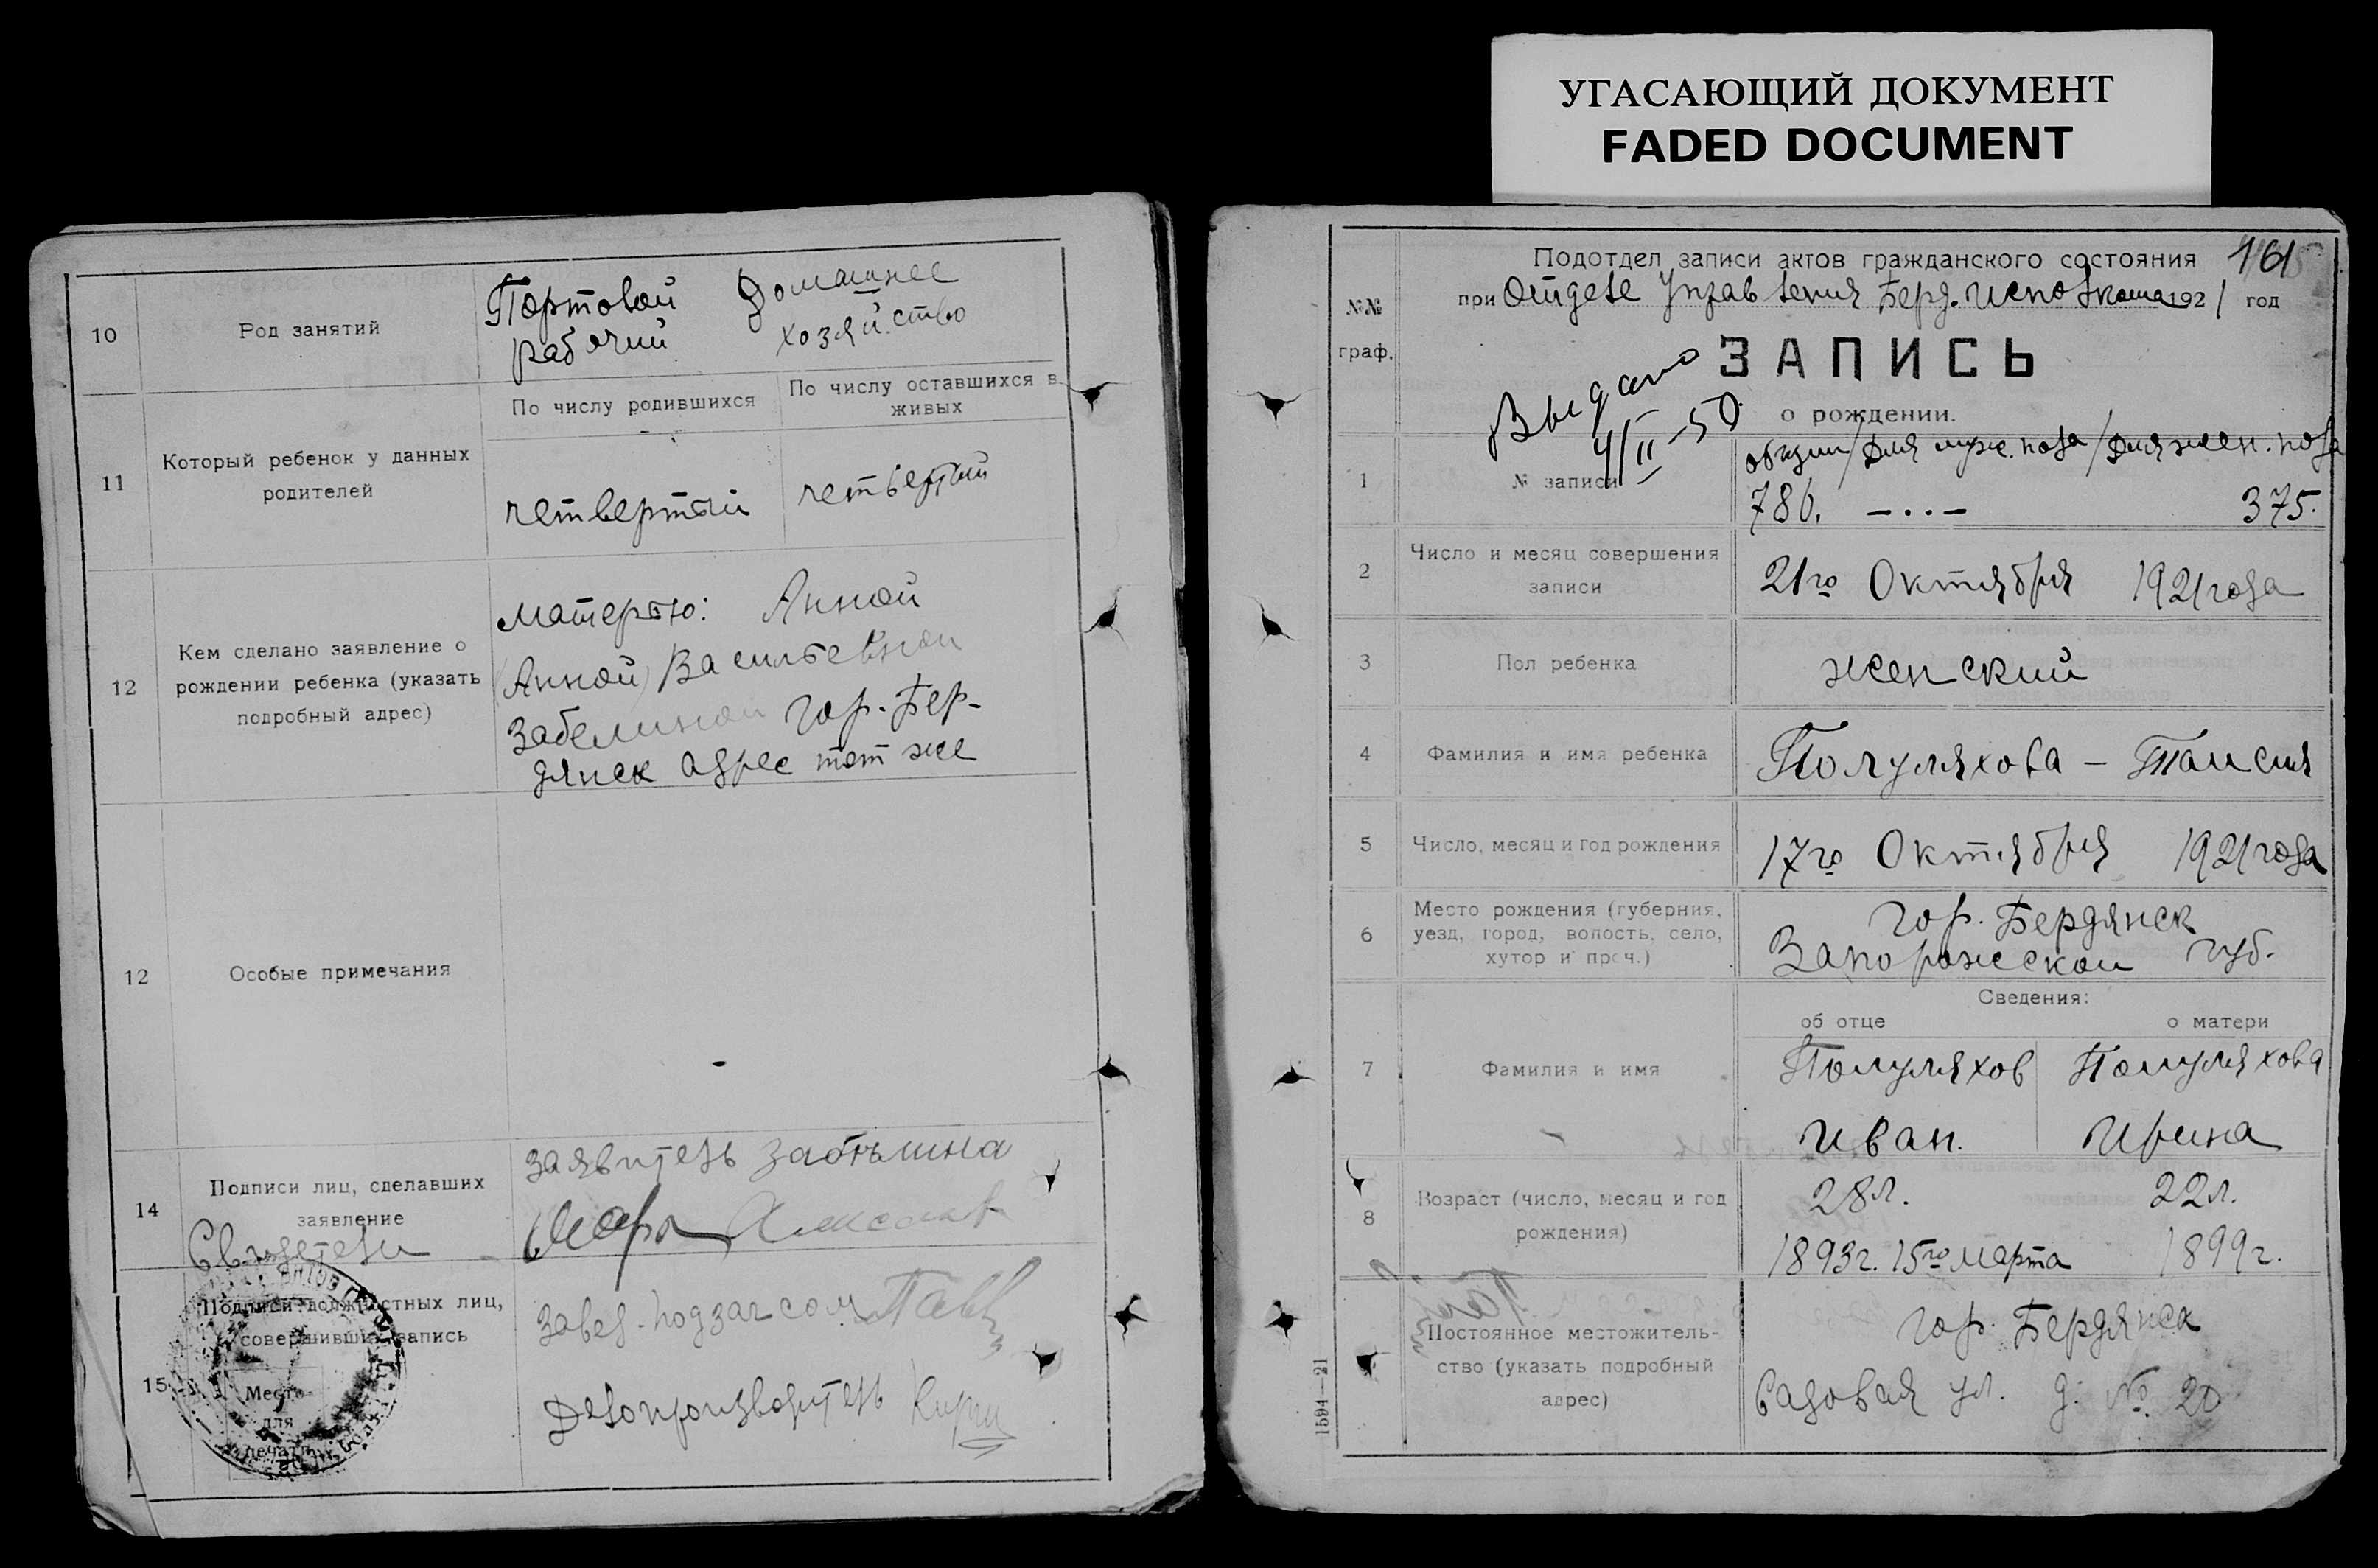 УГАСАЮЩИЙ ДОКУМЕНТ
FADED DOCUMENT
10
Род занятий
Портовой
рабочий
Домашнее
хозяйство
11
Который ребенок у данных
родителей
По числу родившихся
четвертый
По числу оставшихся в
живых
четвертый
12
Кем сделано заявление о
рождении ребенка (указать
подробный адрес)
матерью: Анной
(Анной) Васильевной
Забелиной гор. Бер-
дянск адрес тот же
12
Особые примечания
14
Подписи лиц, сделавших
заявление
Свидетели
заявитель забѣлина
15
Подписи должностных лиц,
совершивших запись
Место
для
печати
Завед. подзагсом
Делопроизводитель
№№
граф.
Подотдел записи актов гражданского состояния
161
при Отделе Управления Берд. Исполкома 1921 год
ЗАПИСЬ
о рождении.
Выдано
4/II-50
1
№ записи
общий/для муж. пола/для жен. пола
786. —··— 375.
2
Число и месяц совершения
записи
21го Октября 1921 года
3
Пол ребенка
женский
4
Фамилия и имя ребенка
Полуляхова – Таисия
5
Число, месяц и год рождения
17го Октября 1921 года
6
Место рождения (губерния,
уезд, город, волость, село,
хутор и проч.)
гор. Бердянск
Запорожской губ.
Сведения:
об отце
о матери
7
Фамилия и имя
Полуляхов
Иван.
Полуляхова
Ирина
8
Возраст (число, месяц и год
рождения)
28л.
1893г. 15го марта
22л.
1899г.
Постоянное местожитель-
ство (указать подробный
адрес)
гор. Бердянск
Садовая ул. д. № 20
1594—21